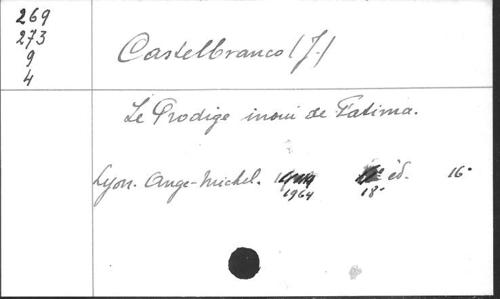 269
273
9
4
Castelbranco (J.)
Le Prodige inoui de Fatima.
Lyon. Ange-Michel. éd. 16°
1964 18°